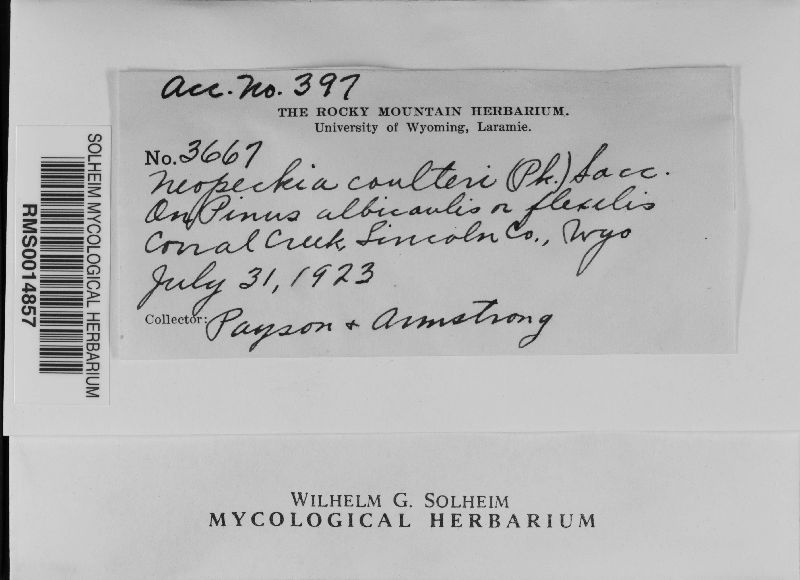 Acc. No. 397
THE ROCKY MOUNTAIN HERBARIUM.
University of Wyoming, Laramie.
No. 3667
Neopeckia coulteri (Pk.) Sacc.
On Pinus albicaulis or flexilis
Corral Creek, Lincoln Co., Wyo
July 31, 1923
Collector: Payson + Armstrong
SOLHEIM MYCOLOGICAL HERBARIUM
RMS0014857
WILHELM G. SOLHEIM
MYCOLOGICAL HERBARIUM